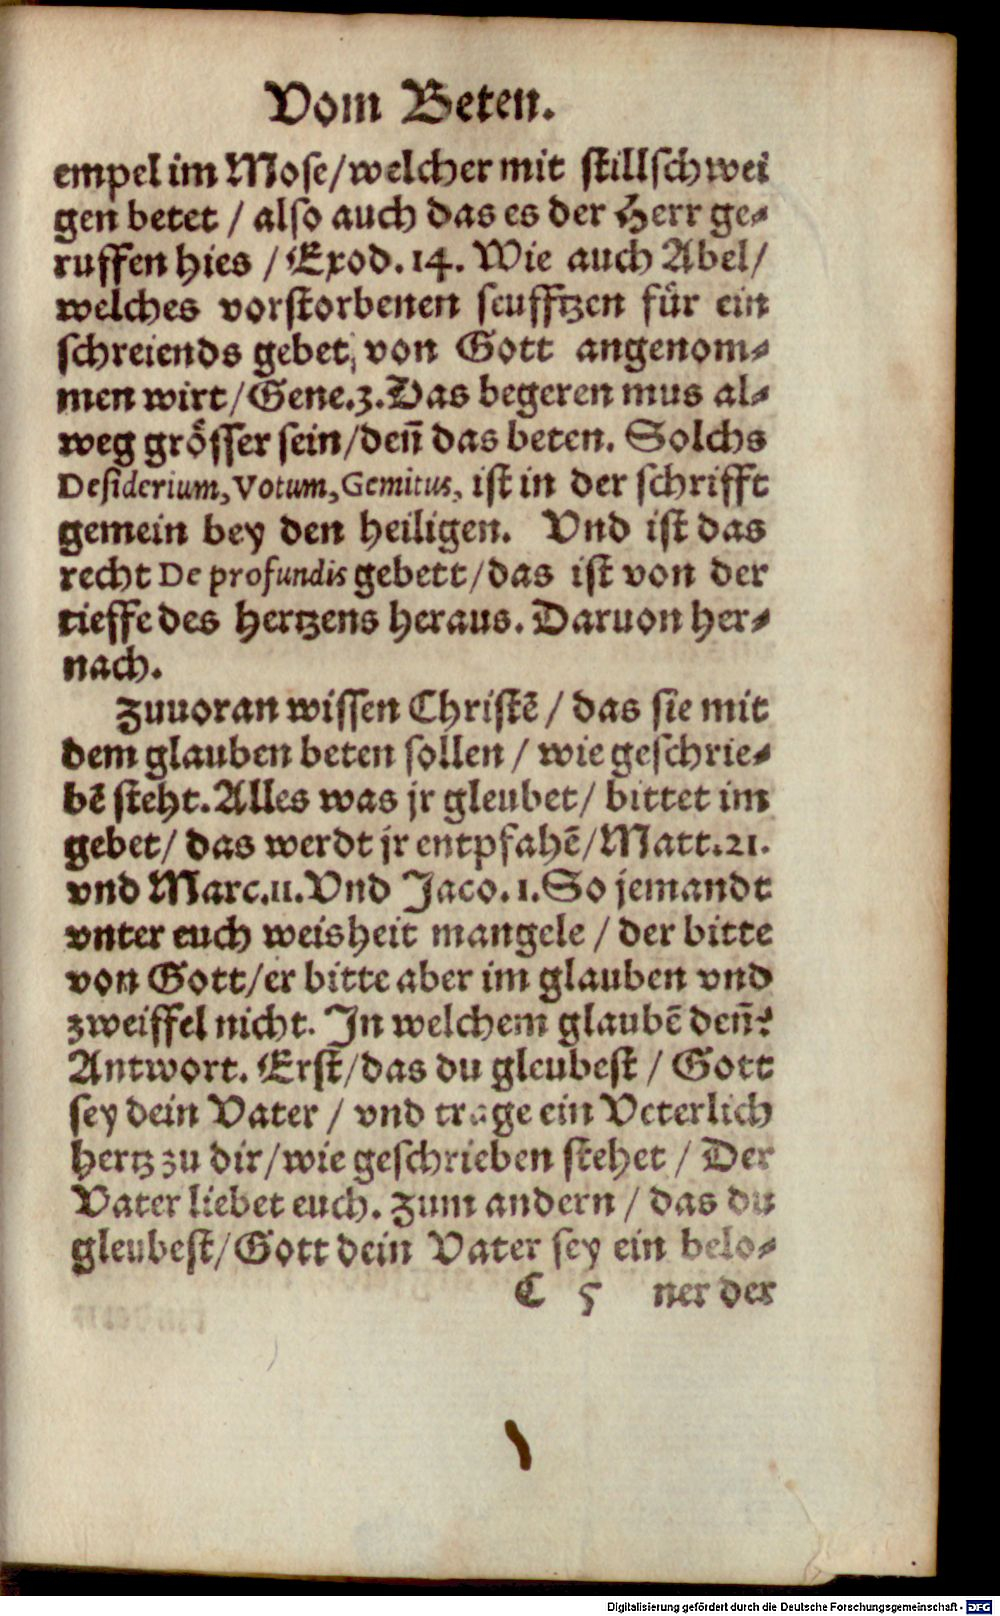 Vom Beten.
empel im Mose/welcher mit stillschwei
gen betet / also auch das es der Herr ge-
ruffen hies / Exod. 14. Wie auch Abel/
welches vorstorbenen seufftzen für ein
schreiends gebet, von Gott angenom-
men wirt/Gene.3. Das begeren mus al-
weg grösser sein/deñ das beten. Solchs
Desiderium, Votum, Gemitus, ist in der schrifft
gemein bey den heiligen. Vnd ist das
recht De profundis gebett/das ist von der
tieffe des hertzens heraus. Daruon her-
nach.
Zuuoran wissen Christē / das sie mit
dem glauben beten sollen / wie geschrie-
bē steht. Alles was jr gleubet/ bittet im
gebet/ das werdt jr entpfahē/Matt.21.
vnd Marc.11. Vnd Jaco.1. So jemandt
vnter euch weisheit mangele / der bitte
von Gott/er bitte aber im glauben vnd
zweiffel nicht. In welchem glaubē deñ?
Antwort. Erst/das du gleubest / Gott
sey dein Vater / vnd trage ein Veterlich
hertz zu dir/wie geschrieben stehet / Der
Vater liebet euch. Zum andern / das du
gleubest/Gott dein Vater sey ein belo-
C 5 ner der
Digitalisierung gefördert durch die Deutsche Forschungsgemeinschaft - DFG